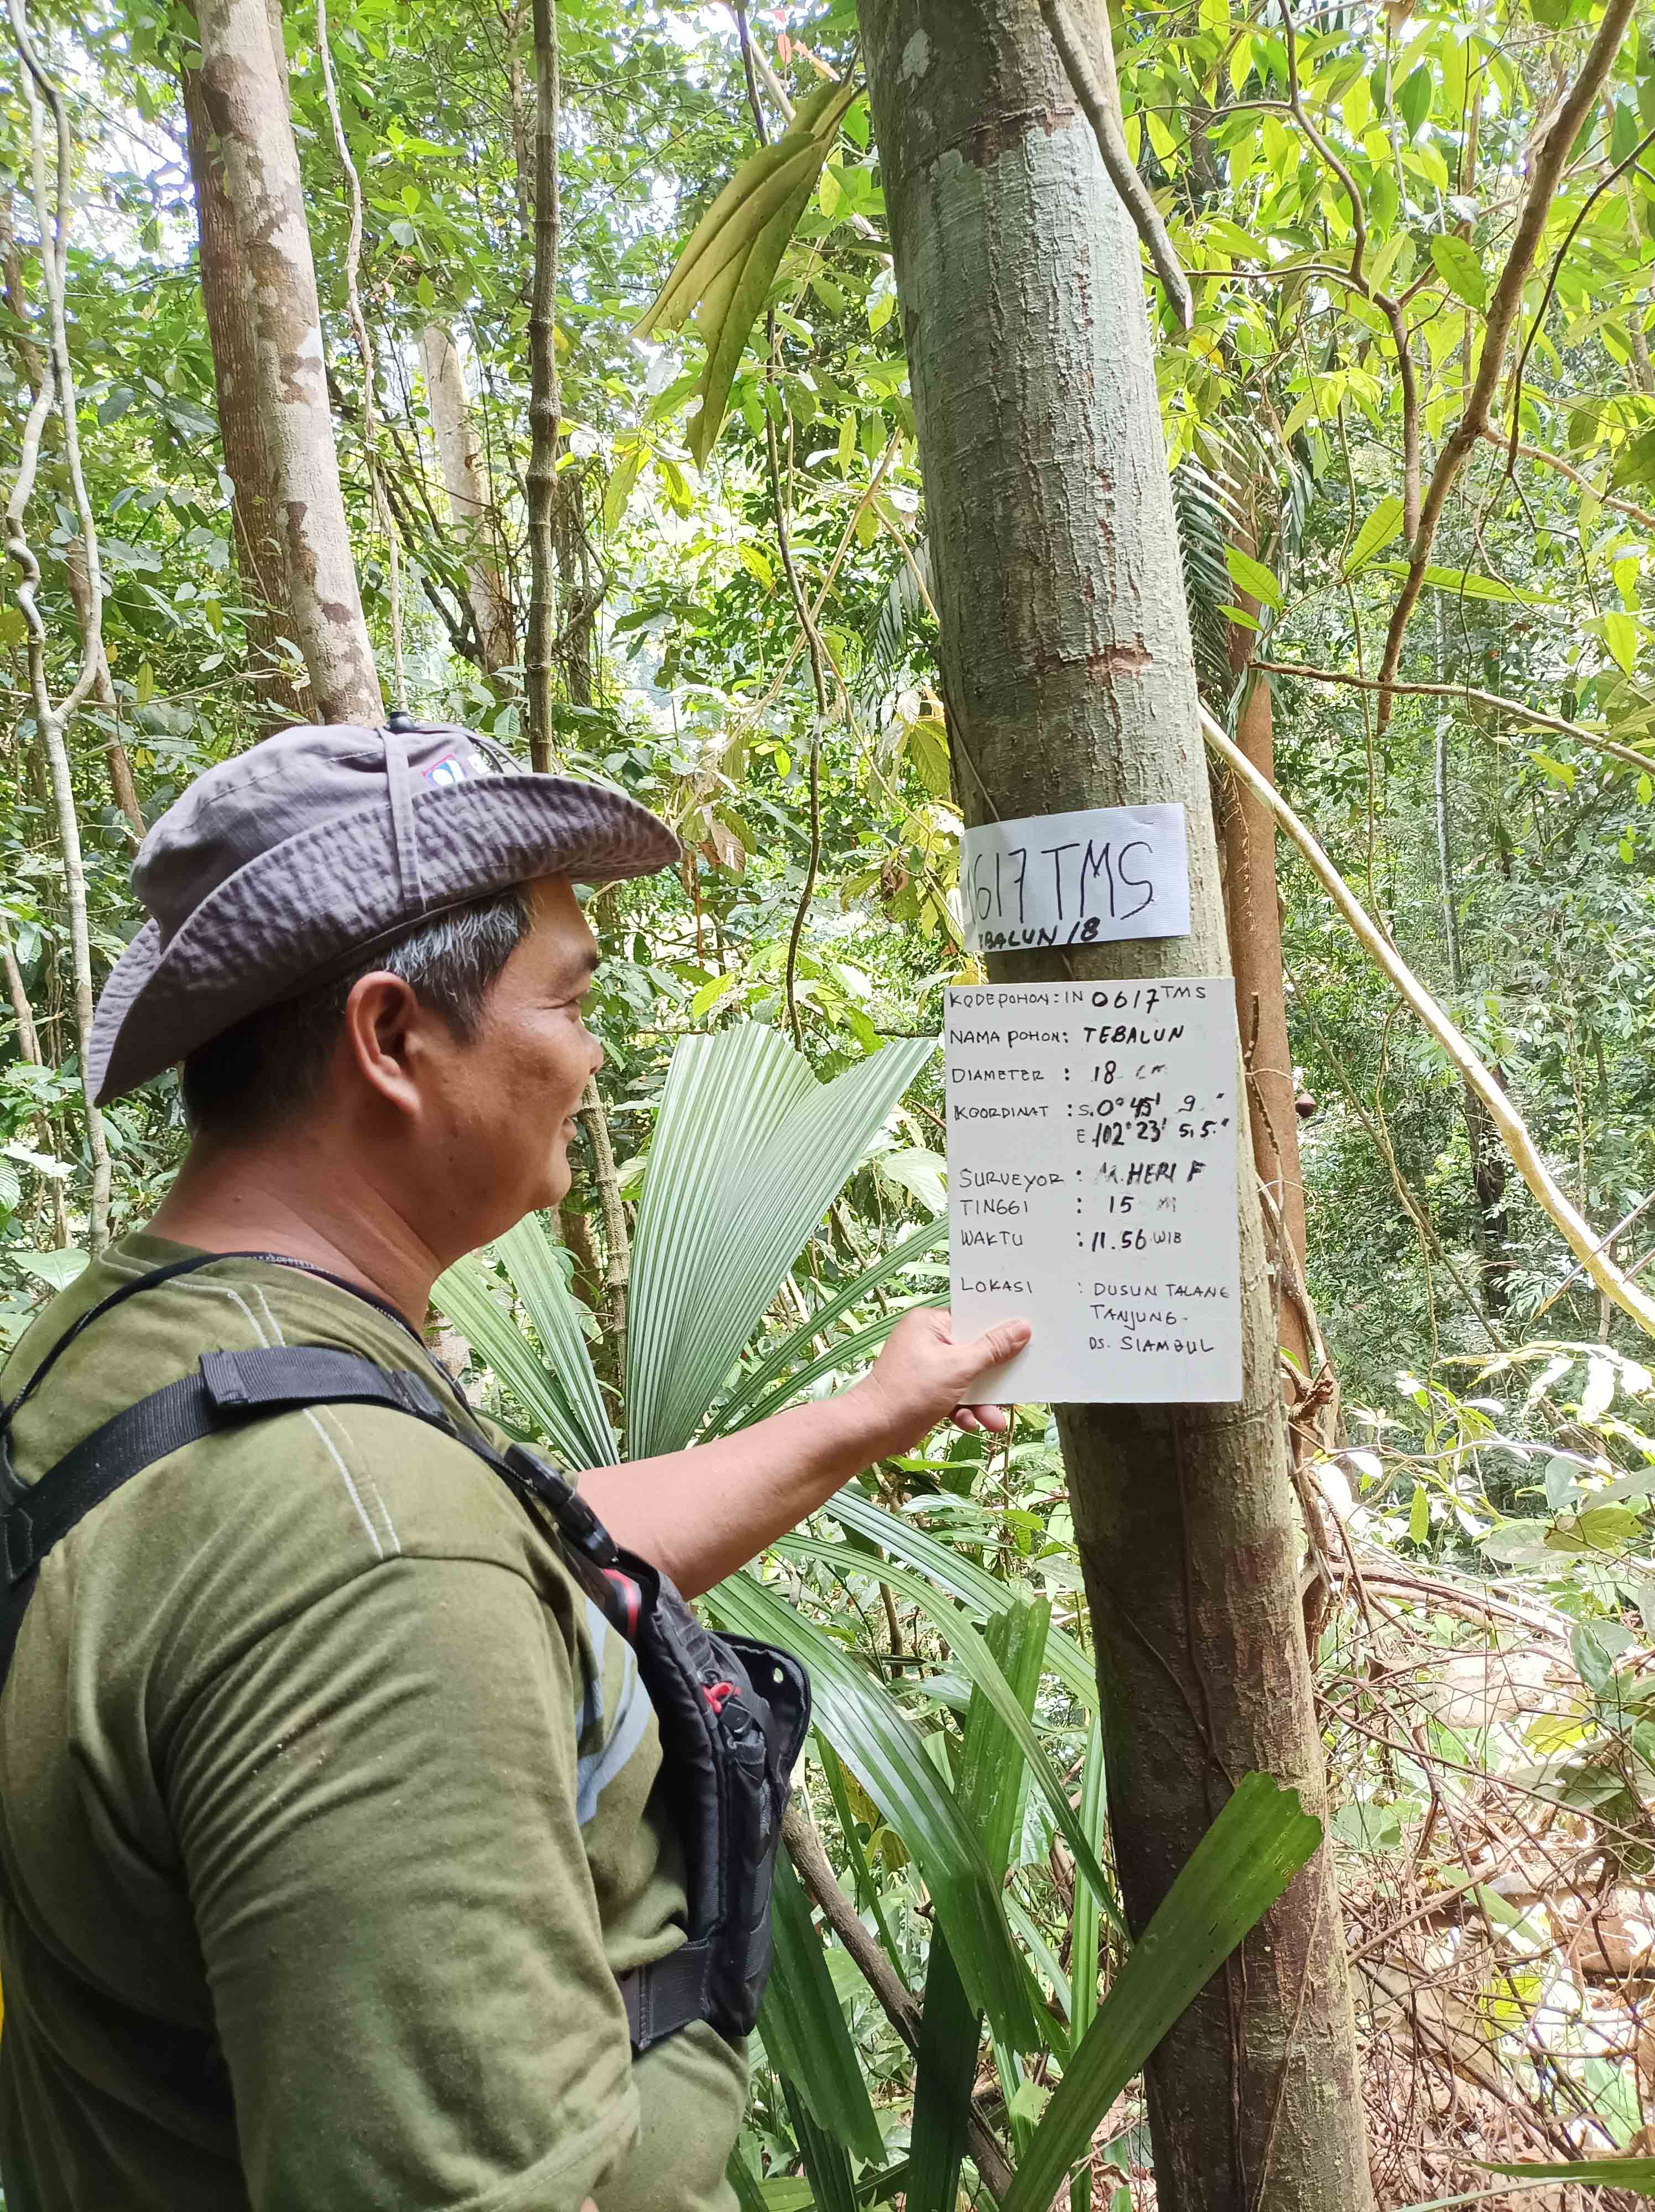 0617 TMS
TEBALUN 18
KODE POHON : IN 0617 TMS
NAMA POHON : TEBALUN
DIAMETER : 18 CM
KOORDINAT : S. 0° 45' 9 "
E. 102° 23' 5,5"
SURVEYOR : M. HERI F
TINGGI : 15 M
WAKTU : 11.56 WIB
LOKASI : DUSUN TALANG
TANJUNG.
DS. SIAMBUL